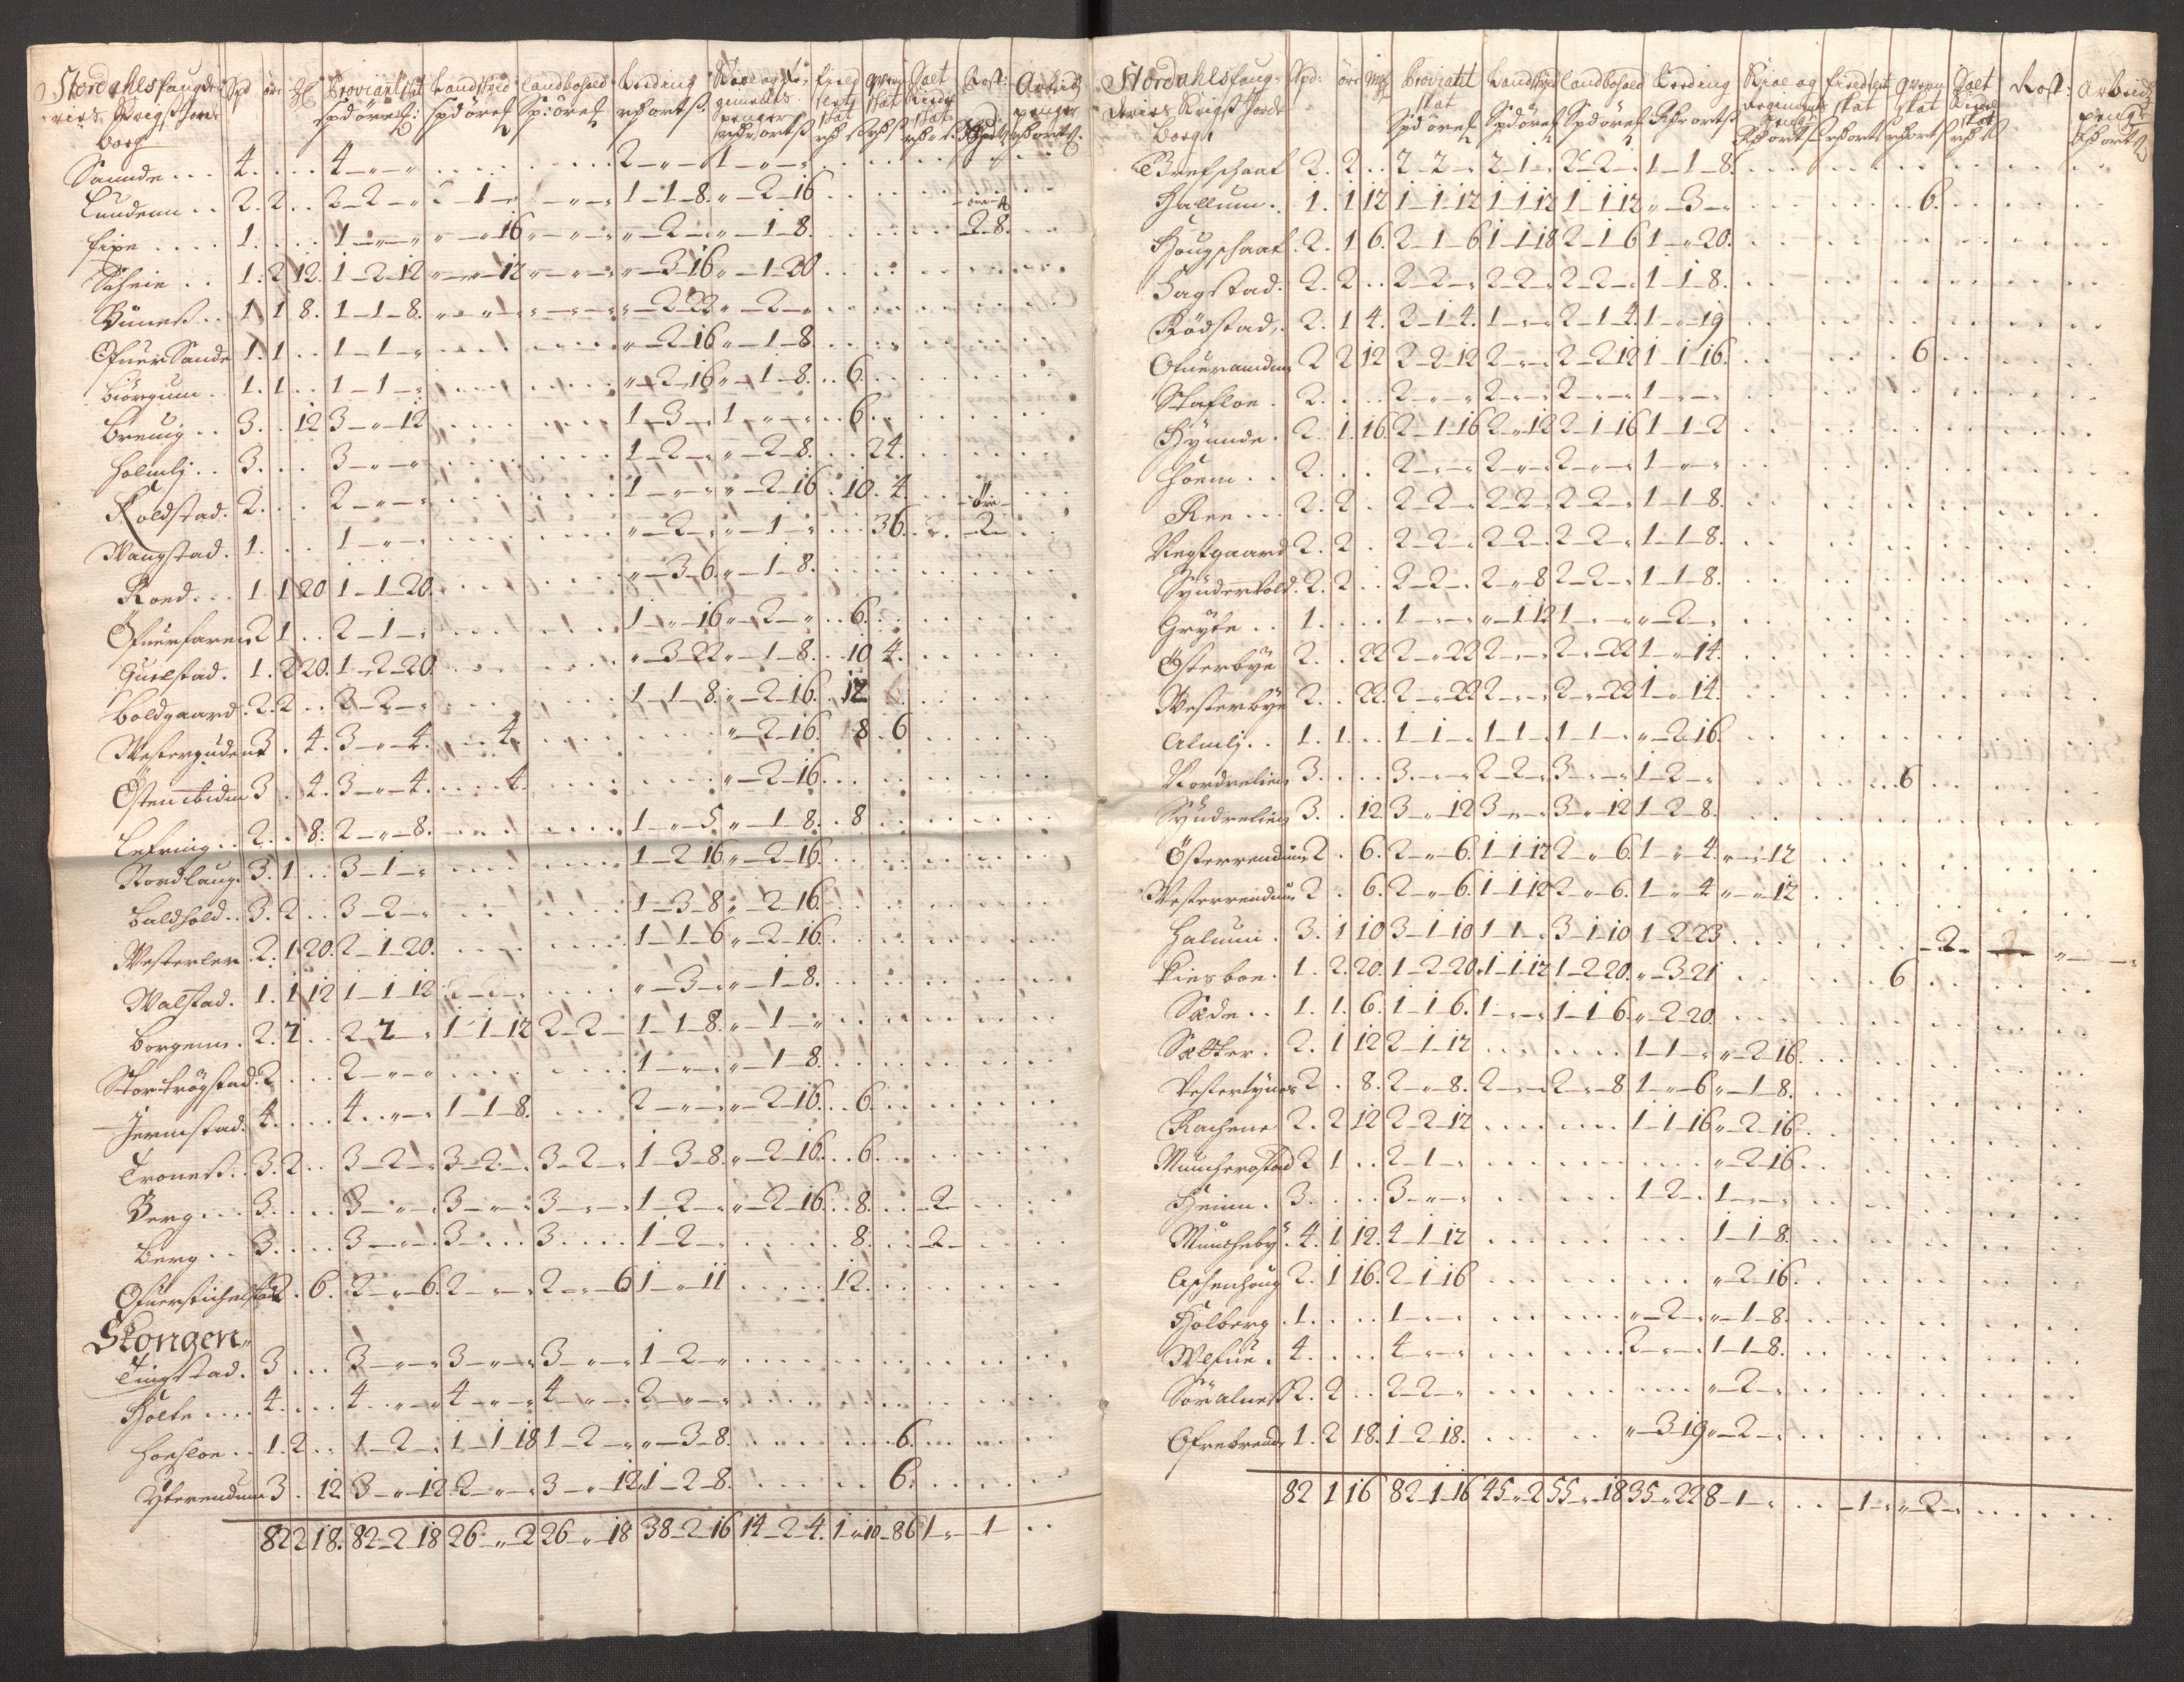 Stordahls fougde
ries Krigs Jorde
bog
Spd öre ₥
Proviantskat Spd öre ₥
Landskyld Spd öre ₥
Landbohold Sp: öre ₥
Leeding rd ort s
Roes og Regementts penger rd ort s
field skat
qvern skat
Salt Kiedel skat
Rost:
Arbeids penger rd ort s
Sannde . . . 4. . . . 4 - " - " 2 - " - " 1 - " - "
Lundenn . . 2. 2 . . 2 - 2 - " 2 - 1 - " 1 - 1 - 8. " - 2 - 16
fixe . . . . 1. . . . 1 - " - " " - " 16 " - 2 - " " - 1 - 8. 2 8.
Scheie . . 1. 2 12. 1 - 2 - 12 " - " - 12 " - 3 16 " - 1 - 20
Büness . . 1 1 8. 1 - 1 - 8. " - 2 22 " - 2 - "
Ofuer Sande 1. 1 . . 1 - 1 - " " - 2 16 " - 1 - 8.
Biörgum . 1. 1 . . 1 - 1 - " " - 2 16 " - 1 - 8. . . 6.
Breuig . . 3. . 12 3 - " - 12 1 - 3 - " 1 - " - " . . 6.
Holmlj . . 3. . . . 3 - " - " 1 - 2 - " " - 2 - 8. . . 24.
Koldstad. 2. . . . 2 - " - " 1 - " - " " - 2 16 . 10. 4. öre
Wangstad. 1. . . . 1 - " - " " - 2 - " " - 1 - " . . . 36. 2
Roed . . . 1 1 20 1 - 1 - 20. " - 3 - 6. " - 1 - 8.
Öfuerfaren 2 1 . . 2 - 1 - " 1 - " - 16 " - 2 - " . . 6.
Quelstad. 1. 2 20. 1 - 2 - 20. " - 3 22 " - 1 - 8. . 10 4.
Boldgaard. 2. 2 . . 2 - 2 - " 1 - 1 - 8. " - 2 - 16. . 12
Westergudem 3 . 4. 3 - " - 4. . . . 4. " - 2 - 16. 8. 6
Östen ibidm 3 . 4. 3 - " - 4. . . . 4. " - 2 - 16.
Lefring . . 2. . 8. 2 - " - 8. 1 - " - 5 " - 1 - 8. . 8
Nordlaug. 3. 1 . . 3 - 1 - " 1 - 2 16 " - 2 - 16.
Baldhold. . 3. 2 . . 3 - 2 - " 1 - 3 - 8 " - 2 16.
Westerlen . 2. 1 20. 2 - 1 - 20. 1 - 1 - 6 " - 2 - 16.
Walstad. 1. 1 12 1 - 1 - 12 " - 3 - " " - 1 - 8.
Borgenn. 2. 2 . . 2 - 2 - " 1 - 1 - 12 2 - 2 - " 1 - 1 - 8. " - 1 - "
Stor trögstad. 2 . . . 2 - " - " 1 - " - " " - 1 - 8.
Jermstad. 4. . . . 4. . " - " 1 - 1 - 8. 2 - " - " " - 2 - 16. . . 6.
Troness . . 3. 2 . . 3 - 2 - " 3 - 2 - " 3 - 2 - " 1 - 3 - 8. " - 2 - 16. . . 6.
Berg . . . 3. . . . 3 - " - " 3 - " - " 3 - " - " 1 - 2 - " " - 2 - 16. . . 8. . . 2
Berg . . 3. . . . 3 - " - " 3 . . . 3 . . . 1 - 2 - " 8. . . 2
Ofuerstichelstad 2 . 6. 2 - " - 6. 2 - " - " 2 - " - 6 1 - " - 11 12.
Skongen
Tingstad. 3 . . . 3 - " - " 3 - " - " 3 - " - " 1 - 2 - "
Holte . . . 4. . . . 4 . . " - " 4 - " - " 4 - " - " 2 - " - "
Hoesloe . . 1. 2 . . 1 - 2 - " 1 - 1 18 1 - 2 - " " - 3 - 8. 6.
Yterendum 3 . 12 3 - " - 12. 2 - " - " 3 - " - 12 1 - 2 - 8. 6.
82 2 18. 82 - 2 18 26 - " - 2 26 - " - 18 38 - 2 16 14 - 2 - 4. 1 " 10 - 86 1 - " - 1
Stordahls foug-
deries Krigs Jorde
bog
Spd: öre ₥
Proviantt skat Spd öre ₥
Landskyld Spd öre ₥
Landbohold Spd öre ₥
Leeding Rdr ort s
Roes og Regiments penge Rd ort s
field skat rd ort s
qvern skat rd ort s
Salt Kiedel skat rd s
Rost:
Arbeids penge Rd ort s
Brefschaaf 2. 2 . . 2 - 2 - " 2 - 1 - " 2 - 2 - " 1 - 1 - 8.
Hallum . 1. 1 12 1 - 1 - 12 1 - 1 12 1 - 1 12 " - 3 - " 6.
Hougschaaf. 2. 1 6. 2 - 1 - 6 1 - 1 18 2 - 1 - 6 1 - " - 20.
Hagstad. 2. 2 . . 2 - 2 - " 2 - 2 - " 2 - 2 - " 1 - 1 - 8.
Rödstad . 2. 1 4. 2 - 1 - 4. 1 - " - " 2 - 1 - 4. 1 - " - 19
Ofueramdm 2 2 12 2 - 2 - 12 2 - " - " 2 - 2 12 1 - 1 - 16. 6
Stafloe . 2. . . . 2 - " - " 2 - " - " 2 - " - " 1 - " - "
Hÿnnde . 2. 1. 16. 2 - 1 - 16 2 - " 12 2 - 1 - 16 1 - 1 - 2
Hoem . . 2. . . . 2 - " - " 2 - " - " 2 - " - " 1 - " - "
Ree . . . 2. 2 . . 2 - 2 - " 2 - 2 - " 2 - 2 - " 1 - 1 - 8.
Vestgaard 2. 2 . . 2 - 2 - " 2 - 2 - " 2 - 2 - " 1 - 1 - 8.
Sÿndertold. 2. 2 . . 2 - 2 - " 2 - " 8 2 - 2 - " 1 - 1 - 8.
Grÿte . . 1. . . . 1 - " - " " - 1 12 1 - " - " " - 2 - "
Österbÿe 2. . 22 2 - " 22 2 - " - " 2 - " 22 1 - " - 14.
Westerbÿe 2. . 22. 2 - " 22 2 - " - " 2 - " 22 1 - " - 14.
Almlj . . 1. 1. . . 1 - 1 - " 1 - 1 - " 1 - 1 - " " - 2 16.
Nordrelien 3. . . . 3 - " - " 2 - 2 - " 3 - " - " 1 - 2 - " 6
Sÿndrelien 3. . 12. 3 - " - 12 3 - " - " 3 - " - 12 1 - 2 - 8.
Österrendum 2 . 6. 2 - " - 6. 1 - 1 12 2 - " - 6. 1 - " - 4. " - " - 12
Vesterrendum 2 . 6. 2 - " - 6. 1 - 1 12 2 - " - 6. 1 - " - 4 " - " - 12
Halumi . 3. 1 10 3 - 1 - 10 1 - 1 - " 3 - 1 10 1 - 2 23 2
Kiesboe . 1. 2. 20. 1 - 2 - 20 1 - 1 12 1 - 2 20. " - 3 21 6
Sæde . . 1. 1. 6. 1 - 1 - 6. 1 - " - " 1 - 1 - 6. " - 2 20.
Sætter . 2. 1 12 2 - 1 - 12 1 - 1 - " " - 2 16.
Vestertÿnes 2 . 8. 2 - " - 8. 2 - " - " 2 - " - 8 1 - " - 6 " - 1 - 8.
Rachene 2. 2 12 2 - 2 - 12 1 - 1 - 16 " - 2 - 16.
Muncherostad 2 1 . . 2 - 1 - " " - 2 16.
Heim . 3. . . . 3 - " - " 1 - 2 - " 1 - " - "
Munchebÿ . 4. 1 12. 4 - 1 - 12 1 - 1 - 8.
Aschenhoug 2. 1 16. 2 - 1 - 16 " - 2 - 16.
Holberg . 1. . . . 1 - " - " " - 2 - " " - 1 - 8.
Welfue . 4. . . . 4 - " - " 2 - " - " 1 - 1 - 8.
Söraluess 2. 2 . . 2 - 2 - " " - 2 - "
Ofrebrend. 1. 2 18. 1 - 2 - 18. " - 3 19 " - 2 - "
82 1 16 82 - 1 - 16 45 " 2 55 - " - 18 35 " 22 8 - 1 - " 1 - " 2 -